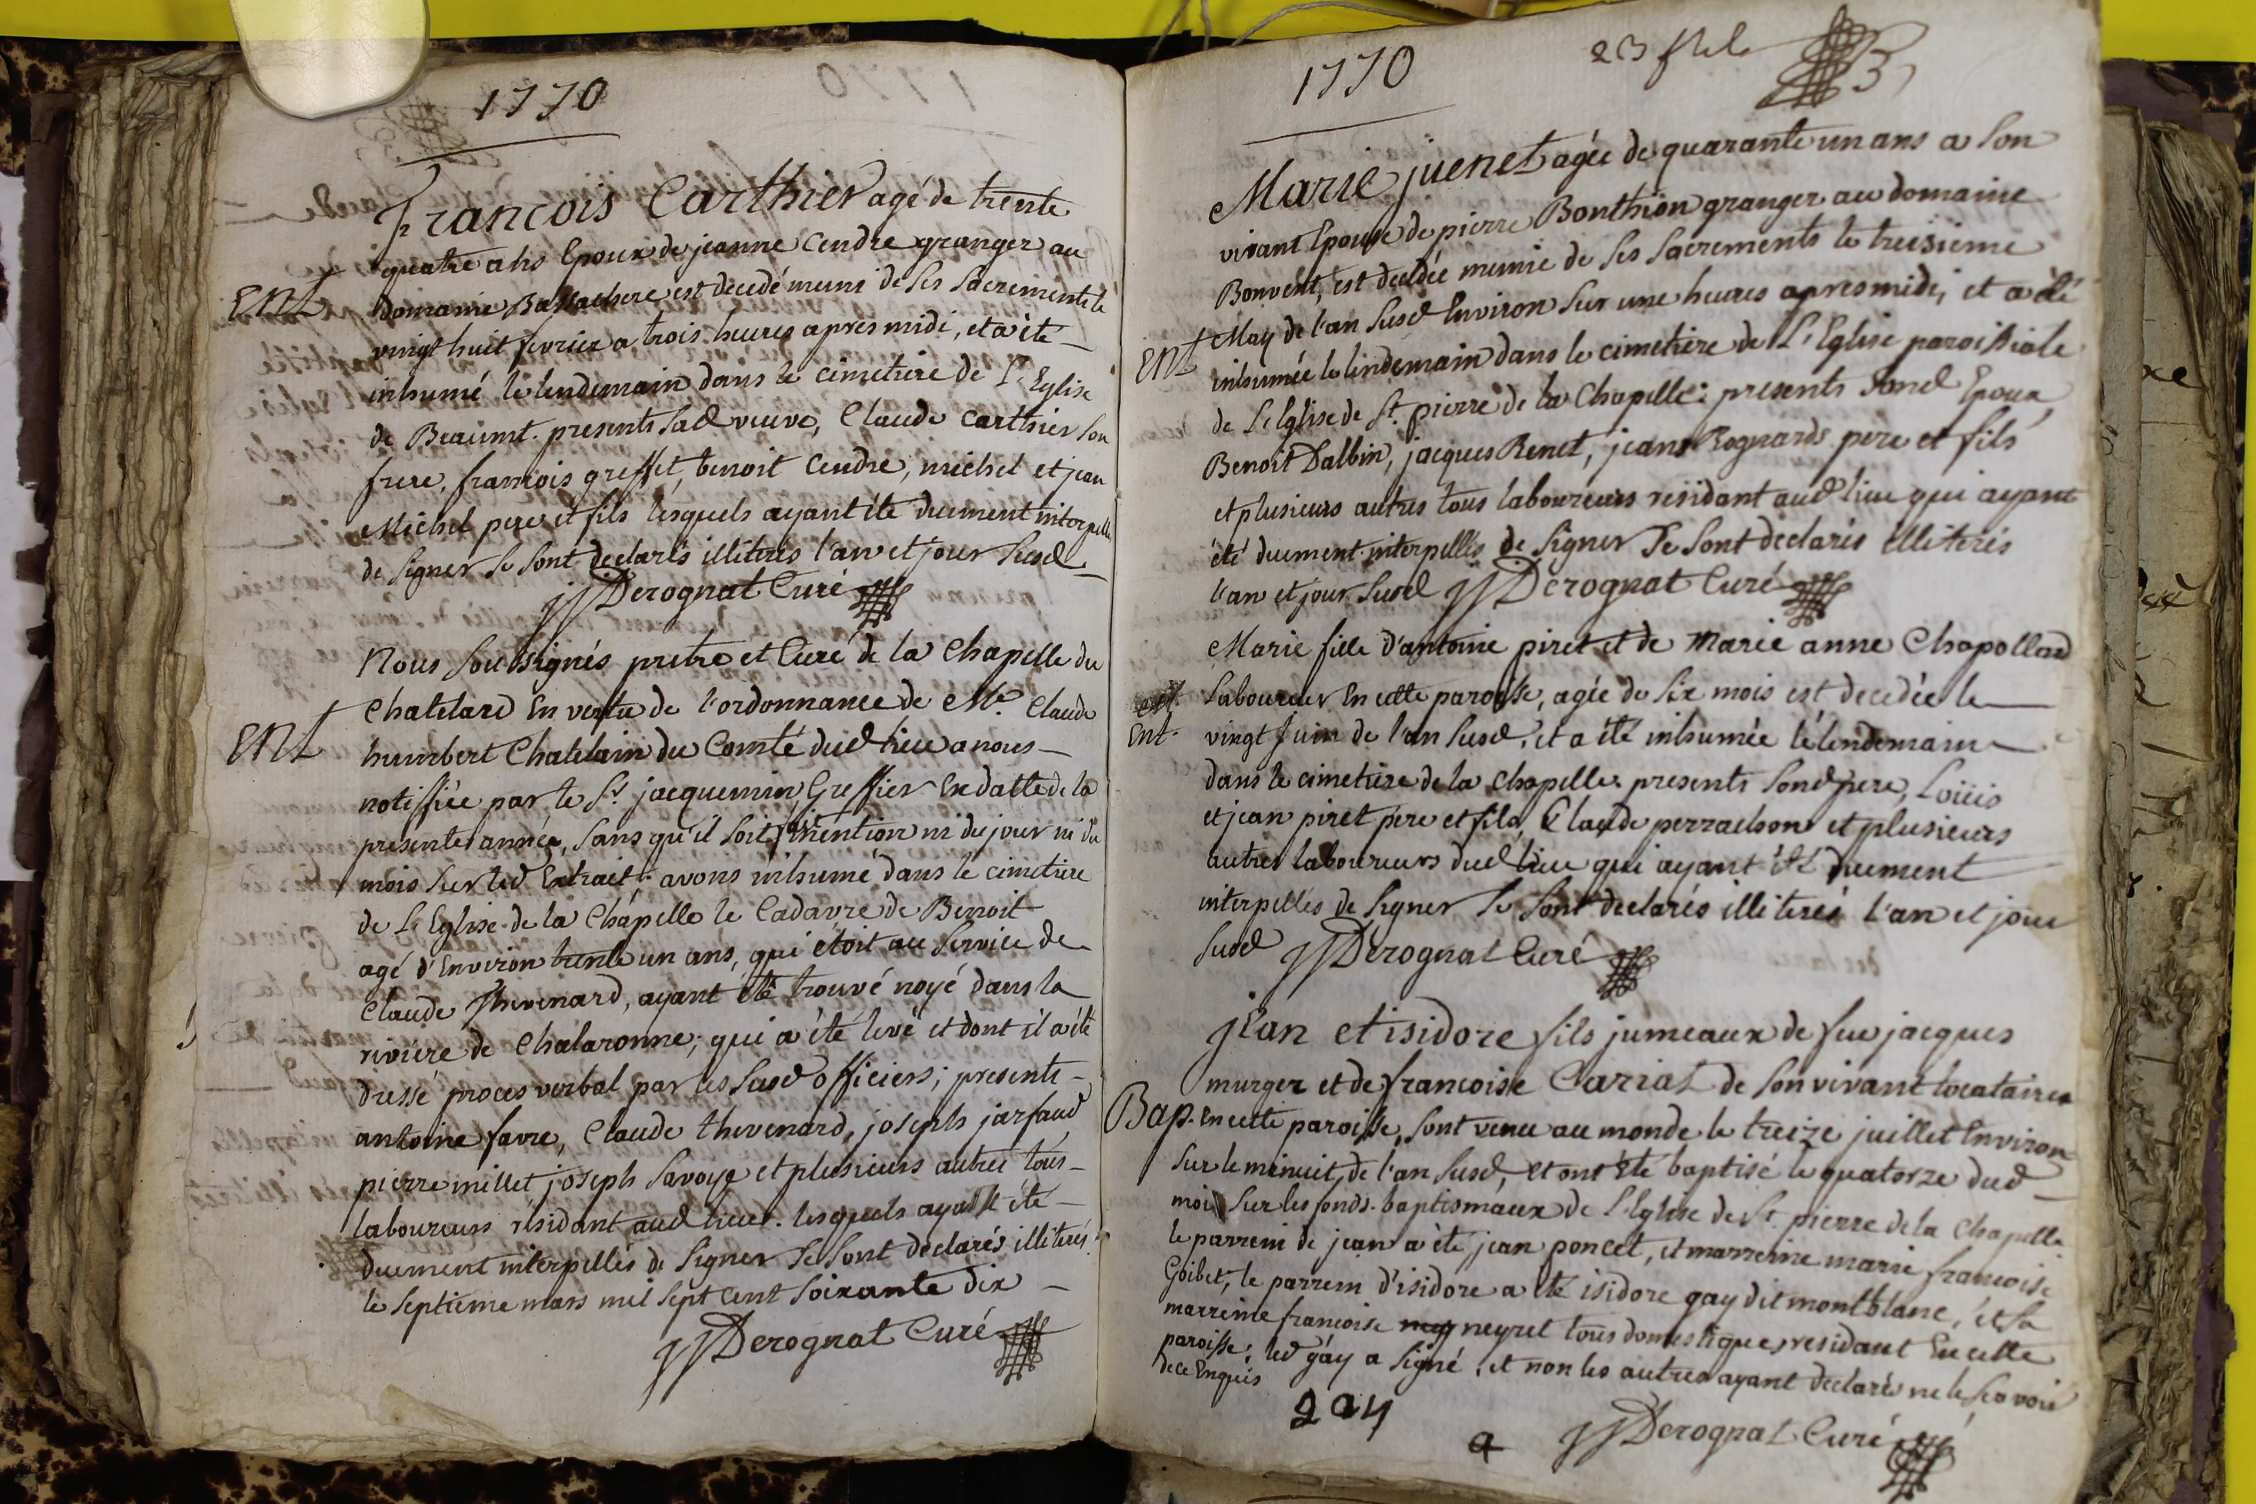 1770
François Carthier agé de trente
quatre ans Epoux de jeanne Cendre granger au
Ent
domaine est decedé muni de ses sacrements le
vingt huit fevrier a trois heures apres midi, et a été
inhumé le lendemain dans le cimetiere de L'Eglise
de Beaumt. presents sad veuve, Claude Carthier son
frere, francois greffet, benoit Cendre, michel et jean
Michel pere et fils lesquels ayant été duement interpellés
de signer se sont declarés illiterés l'an et jour susd
JJ Derognat Curé
Nous soussignés pretre et Curé de la Chapelle du
Chatelard En vertu de l'ordonnance de Me. Claude
Ent
humbert Chatelain du Comté dud lieu a nous
notiffiée par le Sr. jacquemin Greffier En datte de la
presente année, sans qu'il soit fait mention ni du jour ni du
mois sur led Extrait: avons inhumé dans le cimetiere
de L'Eglise de la Chapelle le Cadavre de Benoit
agé d'Environ trente un ans, qui étoit au service de
Claude thevenard, ayant été trouvé noyé dans la
riviere de Chalaronne; qui a été levé et dont il a été
dressé proces verbal par les susd officiers; presents
antoine favre, Claude thevenard, joseph jarfaud
pierre millet joseph savoye et plusieurs autres tous
laboureurs résidant aud lieu. lesquels ayant été
duement interpellés de signer se sont declarés illiterés
le septieme mars mil sept cent soixante dix
JJ Derognat Curé
1770
23
Marie juenet agée de quarante un ans a son
vivant Epouse de pierre Bonthion granger au domaine
Bonvent, est decedée munie de ses sacrements le treisieme
May de l'an susd Environ sur une heures apres midi, et a été
Ent
inhumée le lendemain dans le cimetiere de L'Eglise paroissiale
de L'Eglise de St. pierre de la Chapelle: presents Sond Epoux,
Benoit Dalbin, jacques Renet, jean Rognard pere et fils
et plusieurs autres tous laboureurs residant aud lieu qui ayant
été duement interpellés de signer se sont declarés illiterés
l'an et jour susd JJ Derognat Curé
Marie fille d'antoine piret et de Marie anne Chapolland
laboureur En cette paroisse, agée de six mois est decedée le
Ent.
vingt juin de l'an susd, et a été inhumée le lendemain
dans le cimetiere de la Chapelle presents sond pere, Loüis
et jean piret pere et fils, Claude perrachon et plusieurs
autres laboureurs dud lieu qui ayant été duement
interpellés de signer se sont declarés illiterés l'an et jour
susd JJ Derognat Curé
jean et isidore fils jumeaux de feu jacques
murger et de francoise Cariat de son vivant locataires
Bap.
En cette paroisse, sont venu au monde le treize juillet Environ
sur le minuit de l'an susd, et ont été baptisé le quatorze dud
mois sur les fonds baptismaux de L'Eglise de St. pierre de la Chapelle
le parrein de jean a été jean poncet, et marreine marie francoise
Goibet, le parrein d'isidore a été isidore gay dit montblanc, et sa
marreine francoise neyret tous domestiques residant En cette
paroisse; led gay a signé, et non les autres ayant declarés ne le scavoir
de ce Enquis
JJ Derognat Curé